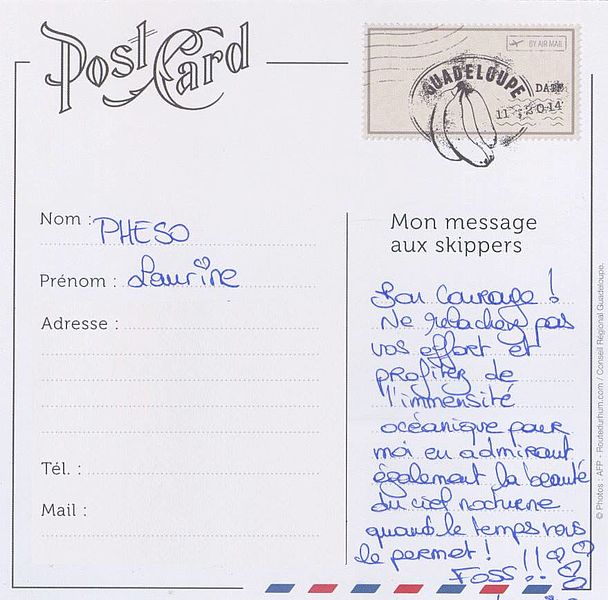 Post Card
BY AIR MAIL
GUADELOUPE
DATE
11 2014
Nom : PHESO
Prénom : Laurine
Adresse :
Tél. :
Mail :
Mon message
aux skippers
Bon Courage !
Ne relachez pas
vos effort et
profitez de
l'immensité
océanique pour
moi en admirant
également la beauté
du ciel nocturne
quand le temps vous
le permet ! !!
© Photos : AFP - Routedurhum.com / Conseil Régional Guadeloupe.